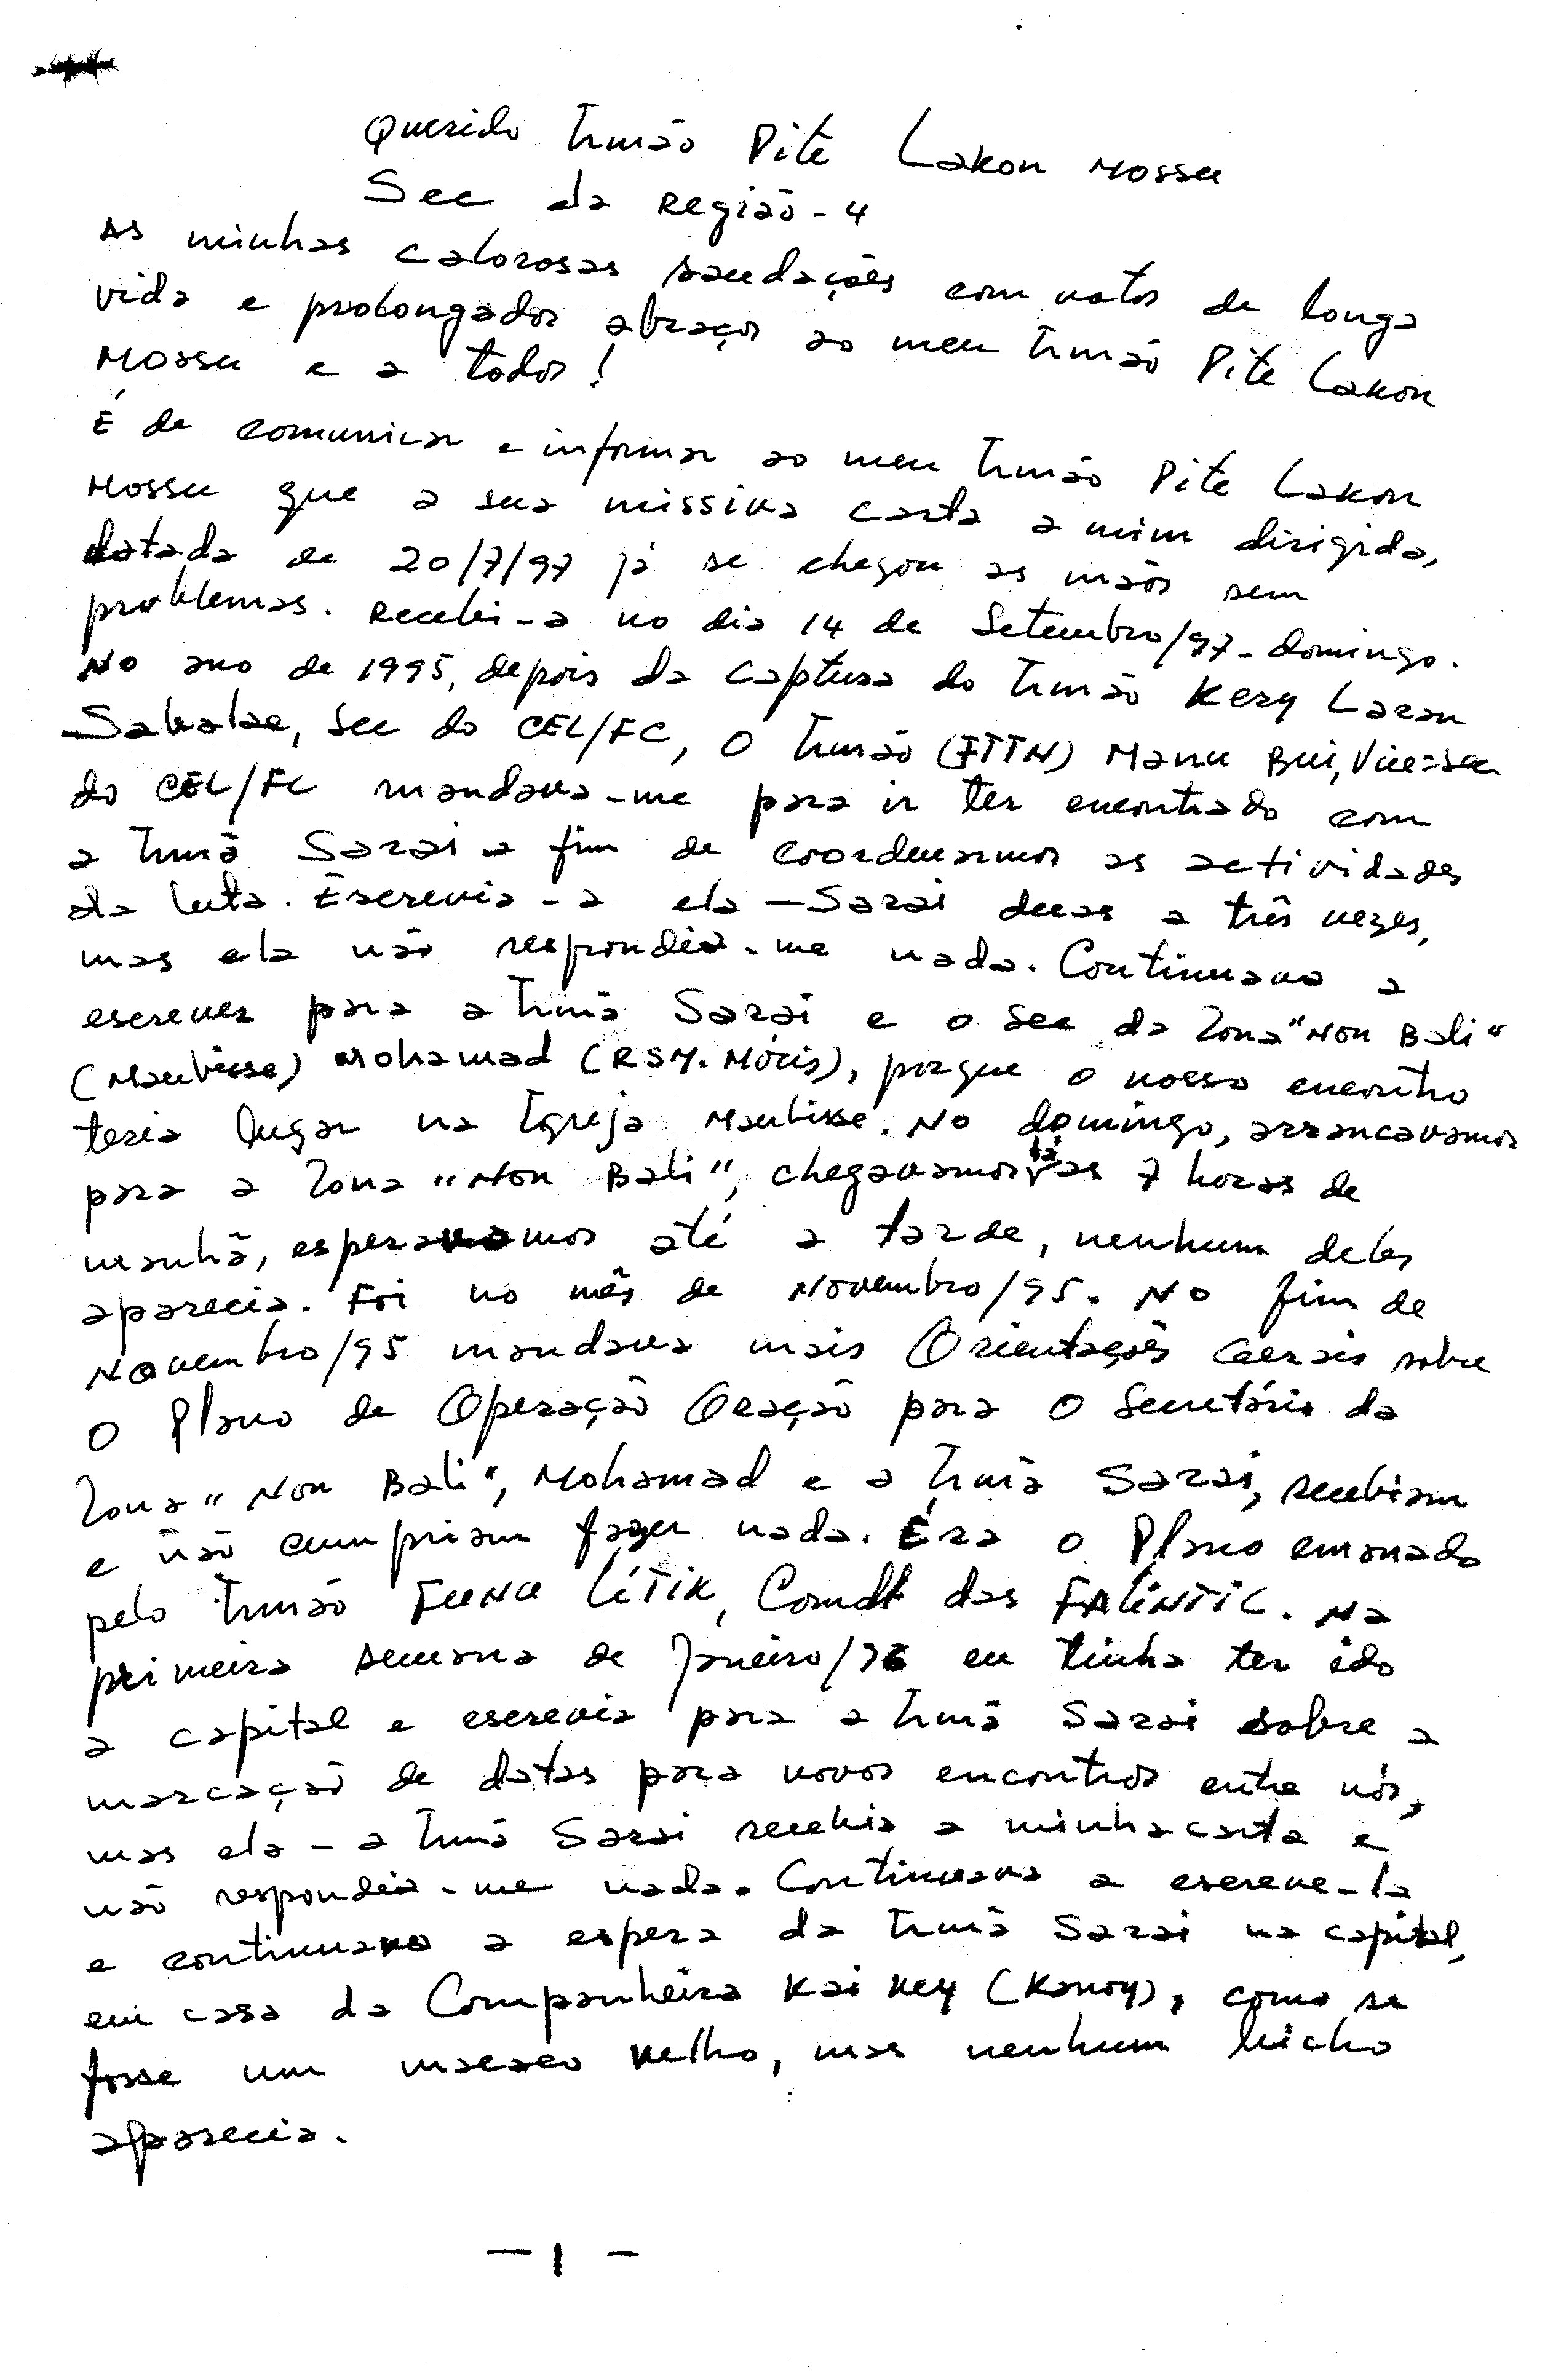 Querido Irmão Pite Lakon Mossu
Sec da Região-4
As minhas calorosas saudações com votos de longa
vida e prolongados abraços ao meu Irmão Pite Lakon
Mossu e a todos!
É de comunicar e informar ao meu Irmão Pite Lakon
Mossu que a sua missiva carta a mim dirigida,
datada de 20/7/97 já se chegou as mãos sem
problemas. Recebi-a no dia 14 de Setembro/97-domingo.
No ano de 1995, depois da captura do Irmão Kery Laran
Sabalae, Sec do CEL/FC, o Irmão (FTTN) Manu Bui, Vice-sec
do CEL/FC mandava-me para ir ter encontrado com
a Irmã Sarai a fim de coordenarmos as actividades
da luta. Escrevia-a ela-Sarai duas a três vezes,
mas ela não respondia-me nada. Continuava a
escrever para a Irmã Sarai e o Sec da Zona "Non Bali"
(Maubisse) Mohamad (RSM. Móris), porque o nosso encontro
teria lugar na Igreja Maubisse. No domingo, arrancavamos
para a Zona "Non Bali", chegavamos lá as 7 horas de
manhã, esperavamos até a tarde, nenhum deles
aparecia. Foi no mês de Novembro/95. No fim de
Novembro/95 mandava mais Orientações Gerais sobre
o Plano de Operação Oração para o Secretário da
Zona "Non Bali", Mohamad e a Irmã Sarai, recebiam
e não cumpriam fazer nada. Éra o Plano emanado
pelo Irmão FUNU LÍTIK, Comdt das FALINTIL. Na
primeira semana de Janeiro/96 eu tinha ter ido
a capital e escrevia para a Irmã Sarai sobre a
marcação de datas para novos encontros entre nós,
mas ela - a Irmã Sarai recebia a minha carta e
não respondia-me nada. Continuava a escreve-la
e continuava a espera da Irmã Sarai na capital,
em casa da Companheira Kai Key (Kanoy), como se
fosse um macaco velho, mas nenhum bicho
aparecia.
- 1 -